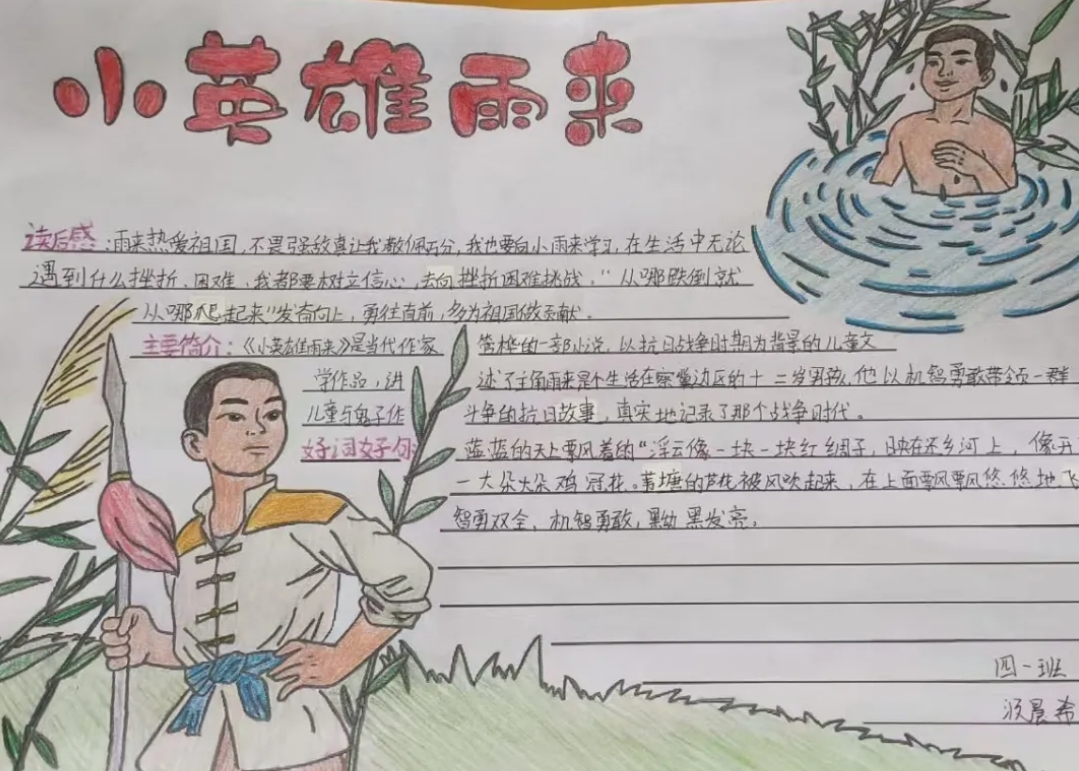 小英雄雨来
读后感:雨来热爱祖国,不畏强敌真让我敬佩万分,我也要向小雨来学习,在生活中无论
遇到什么挫折、困难、我都要树立信心,去向挫折困难挑战,"从哪跌倒就
从哪爬起来"发奋向上,勇往直前,多为祖国做贡献。
主要简介:《小英雄雨来》是当代作家 管桦的一部小说,以抗日战争时期为背景的儿童文
学作品,讲 述了主角雨来是个生活在晋冀边区的十二岁男孩,他以机智勇敢带领一群
儿童与鬼子作 斗争的抗日故事,真实地记录了那个战争时代。
好词好句: 蓝蓝的天上飘风着的"浮云像一块一块红绸子,映在还乡河上,像开
一大朵大朵鸡冠花。苇塘的芦花被风吹起来,在上面飘飘悠悠地飞
智勇双全、机智勇敢,黝黑发亮,
四一班
晨希